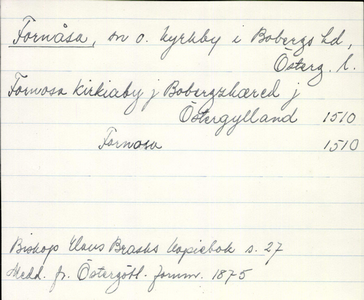 Fornåsa, sn o. kyrkby i Bobergs hd,
Österg. l.
Fornosa kirkiaby j Bobergzhæred j
Östergylland 1510
Fornosa 1510
Biskop Hans Brasks kopiebok s. 27
Medd. fr. Östergötl. fornm. 1875